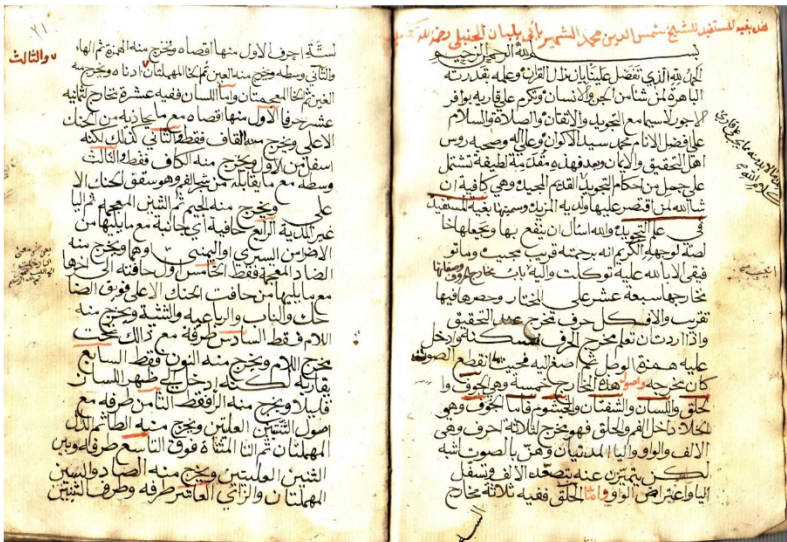 هذه بغية المستفيد للشيخ شمس الدين محمد الشهير بابن بلبان الحنبلي رحمه الله
بسم الله الرحمن الرحيم
الحمد لله الذي تفضل علينا بانزال القران وعلمه بقدرته
الباهرة لمن شا من الجن والانسان وتكرم على قاريه بوافر
الاجور لاسيما مع التجويد والاتقان والصلاة والسلام
على افضل الانام محمد سيد الاكوان وعلى اله وصحبه روس
اهل التحقيق والايمان وبعد فهذه مقدمة لطيفة تشتمل
على جمل من احكام التجويد القديم المجيد وهي كافية ان
شا الله لمن اقتصر عليها ولديه المزيد وسميتها بغية المستفيد
في علم التجويد والله اسال ان ينفع بها ويجعلها خا
لصة لوجهه الكريم انه برحمته قريب مجيب وما تو
فيقي الا بالله عليه توكلت واليه باب مخارج الحروف وصفاتها
مخارجها سبعة عشر على المختار وحصرها فيها
تقريب والا فكل حرف مخرج عند التحقيق
واذا اردت ان تعلم مخرج الحرف فسكنه وادخل
عليه همزة الوصل ثم اصغ اليه فحيث انقطع الصوت
كان مخرجه واصول هذه المخارج خمسة وهي الجوف وا
لحلق واللسان والشفتان والخيشوم فاما الجوف وهو
الخلا داخل الفم والحلق فهو مخرج لثلاثة احرف وهي
الالف والواو واليا المديتان وهن بالصوت اشبه
لكن يتميزن عنه بتصعد الالف وتسفل
اليا واعتراض الواو واما الحلق ففيه ثلاثة مخارج
لستة احرف الاول منها اقصاه ويخرج منه الهمزة ثم الهاء
والثاني وسطه ويخرج منه العين ثم الحا المهملتان ادناه ويخرج منه
والثالث
الغين ثم الخا المعجمتان واما اللسان ففيه عشرة مخارج لثمانية
عشر حرفا الاول منها اقصاه مع ما يحاذيه من الحنك
الاعلى ويخرج منه القاف فقط والثاني كذلك لكنه
اسفل من الاول ويخرج منه الكاف فقط والثالث
وسطه مع ما يقابله من وهو سقف الحنك الا
على ويخرج منه الجيم ثم الشين المعجمة ثم اليا
غير المدية الرابع حافية اي جانبه مع ما يليها من
الاضراس اليسرى واليمنى وهما ويخرج منه
الضاد المعجمة فقط الخامس اول حافته الى اخرها
مع ما يليها من حافت الحنك الاعلى فويق الضا
حك والناب والرباعية والثنية ويخرج منه
اللام فقط السادس طرفه مع ذالك تحت
مخرج اللام ويخرج منه النون فقط السابع
يقاربه لكنه ادخل الى ظهر اللسان
قليلا ويخرج منه الرا فقط الثامن طرفه مع
اصول الثنيتين العليتين ويخرج منه الطا ثم الدال
المهملتان ثم التا المثناة فوق التاسع طرفه وبين
الثنيتين العليتين ويخرج منه الصاد والسين
المهملتان والزاي العاشر طرفه وطرف الثنيتين